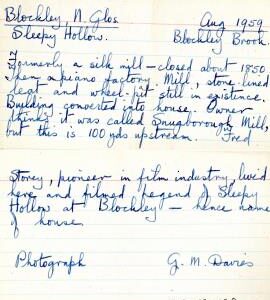 Blockley, N. Glos. Aug 1959
Sleepy Hollow. Blockley Brook.
Formerly a silk mill - closed about 1850.
Then a piano factory. Mill, stone lined
leat and wheel-pit still in existence.
Building converted into house. Owner
thinks it was called Snugborough Mill,
but this is 100 yds upstream. Fred
Storey, pioneer in film industry, lived
here and filmed Legend of Sleepy
Hollow at Blockley - hence name
of house.
Photograph G. M. Davies